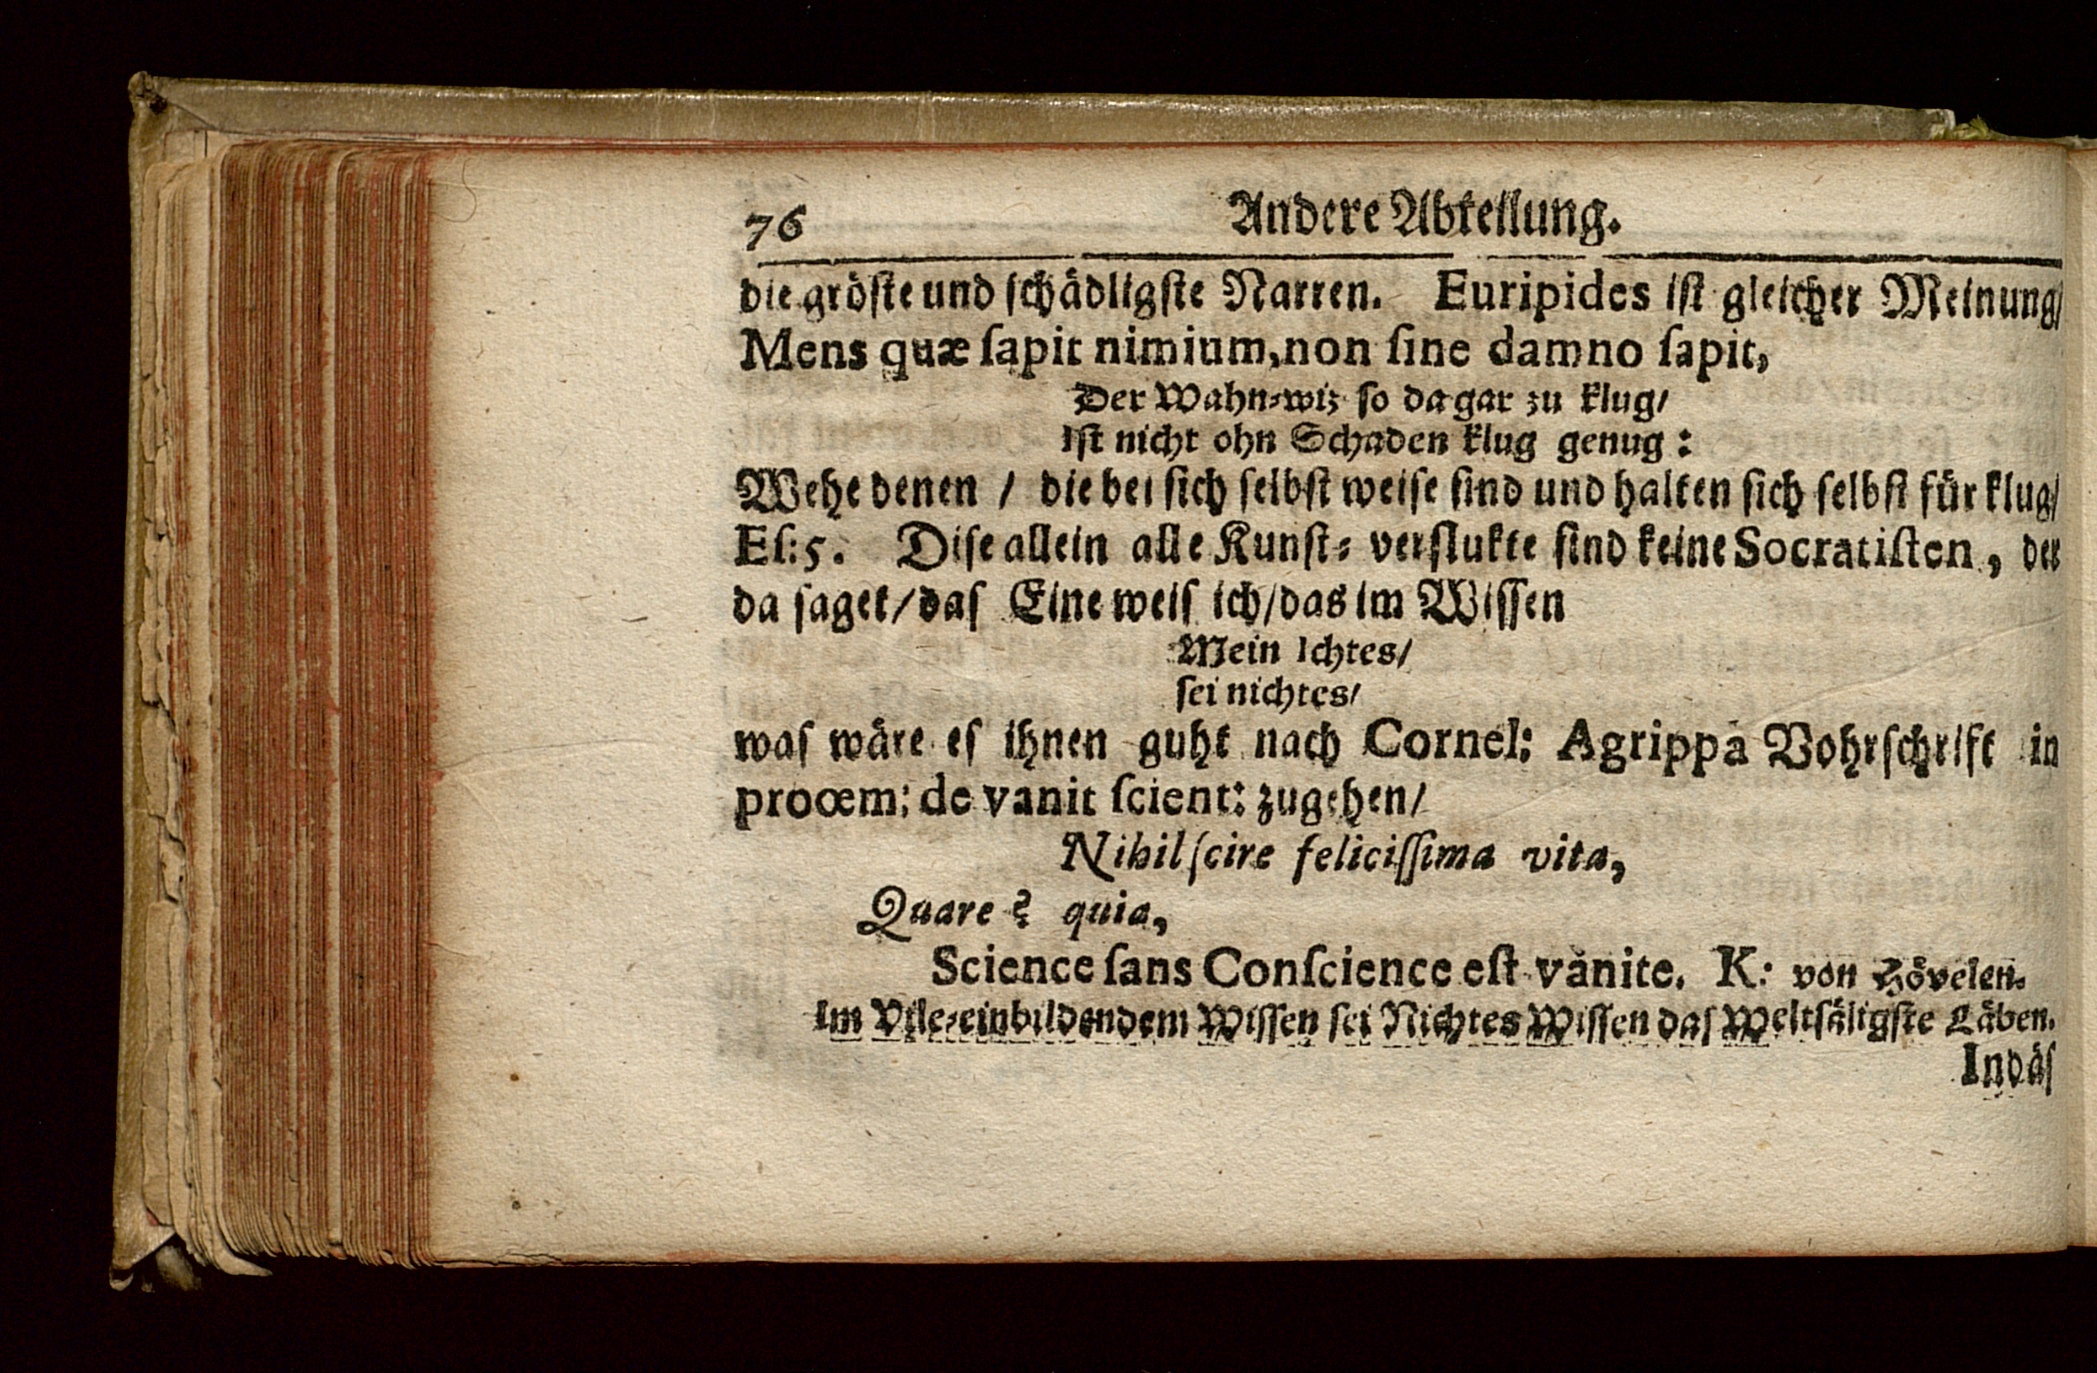 76 Andere Abteilung.
die gröſte und ſchädligſte Narren. Euripides iſt gleicher Meinung/
Mens quæ ſapit nimium, non ſine damno ſapit,
Der Wahn-wiz ſo da gar zu klug/
Iſt nicht ohn Schaden klug genug:
Wehe denen / die bei ſich ſelbſt weiſe ſind und halten ſich ſelbſt für klug/
Eſ: 5. Diſe allein alle Kunſt- verſlukte ſind keine Socratiſten, der
da ſaget/ daſ Eine weiſ ich/ das im Wiſſen
Mein Ichtes/
ſei nichtes/
waſ wäre eſ ihnen guht nach Cornel: Agrippa Vohrſchrift in
proœm: de vanit ſcient: zugehen/
Nihil ſcire feliciſſima vita,
Quare? quia,
Science ſans Conſcience eſt vanite. K: von Hövelen.
Im Vile-einbildendem Wiſſen ſei Nichtes Wiſſen daſ Weltſäligſte Läben.
Indäſ